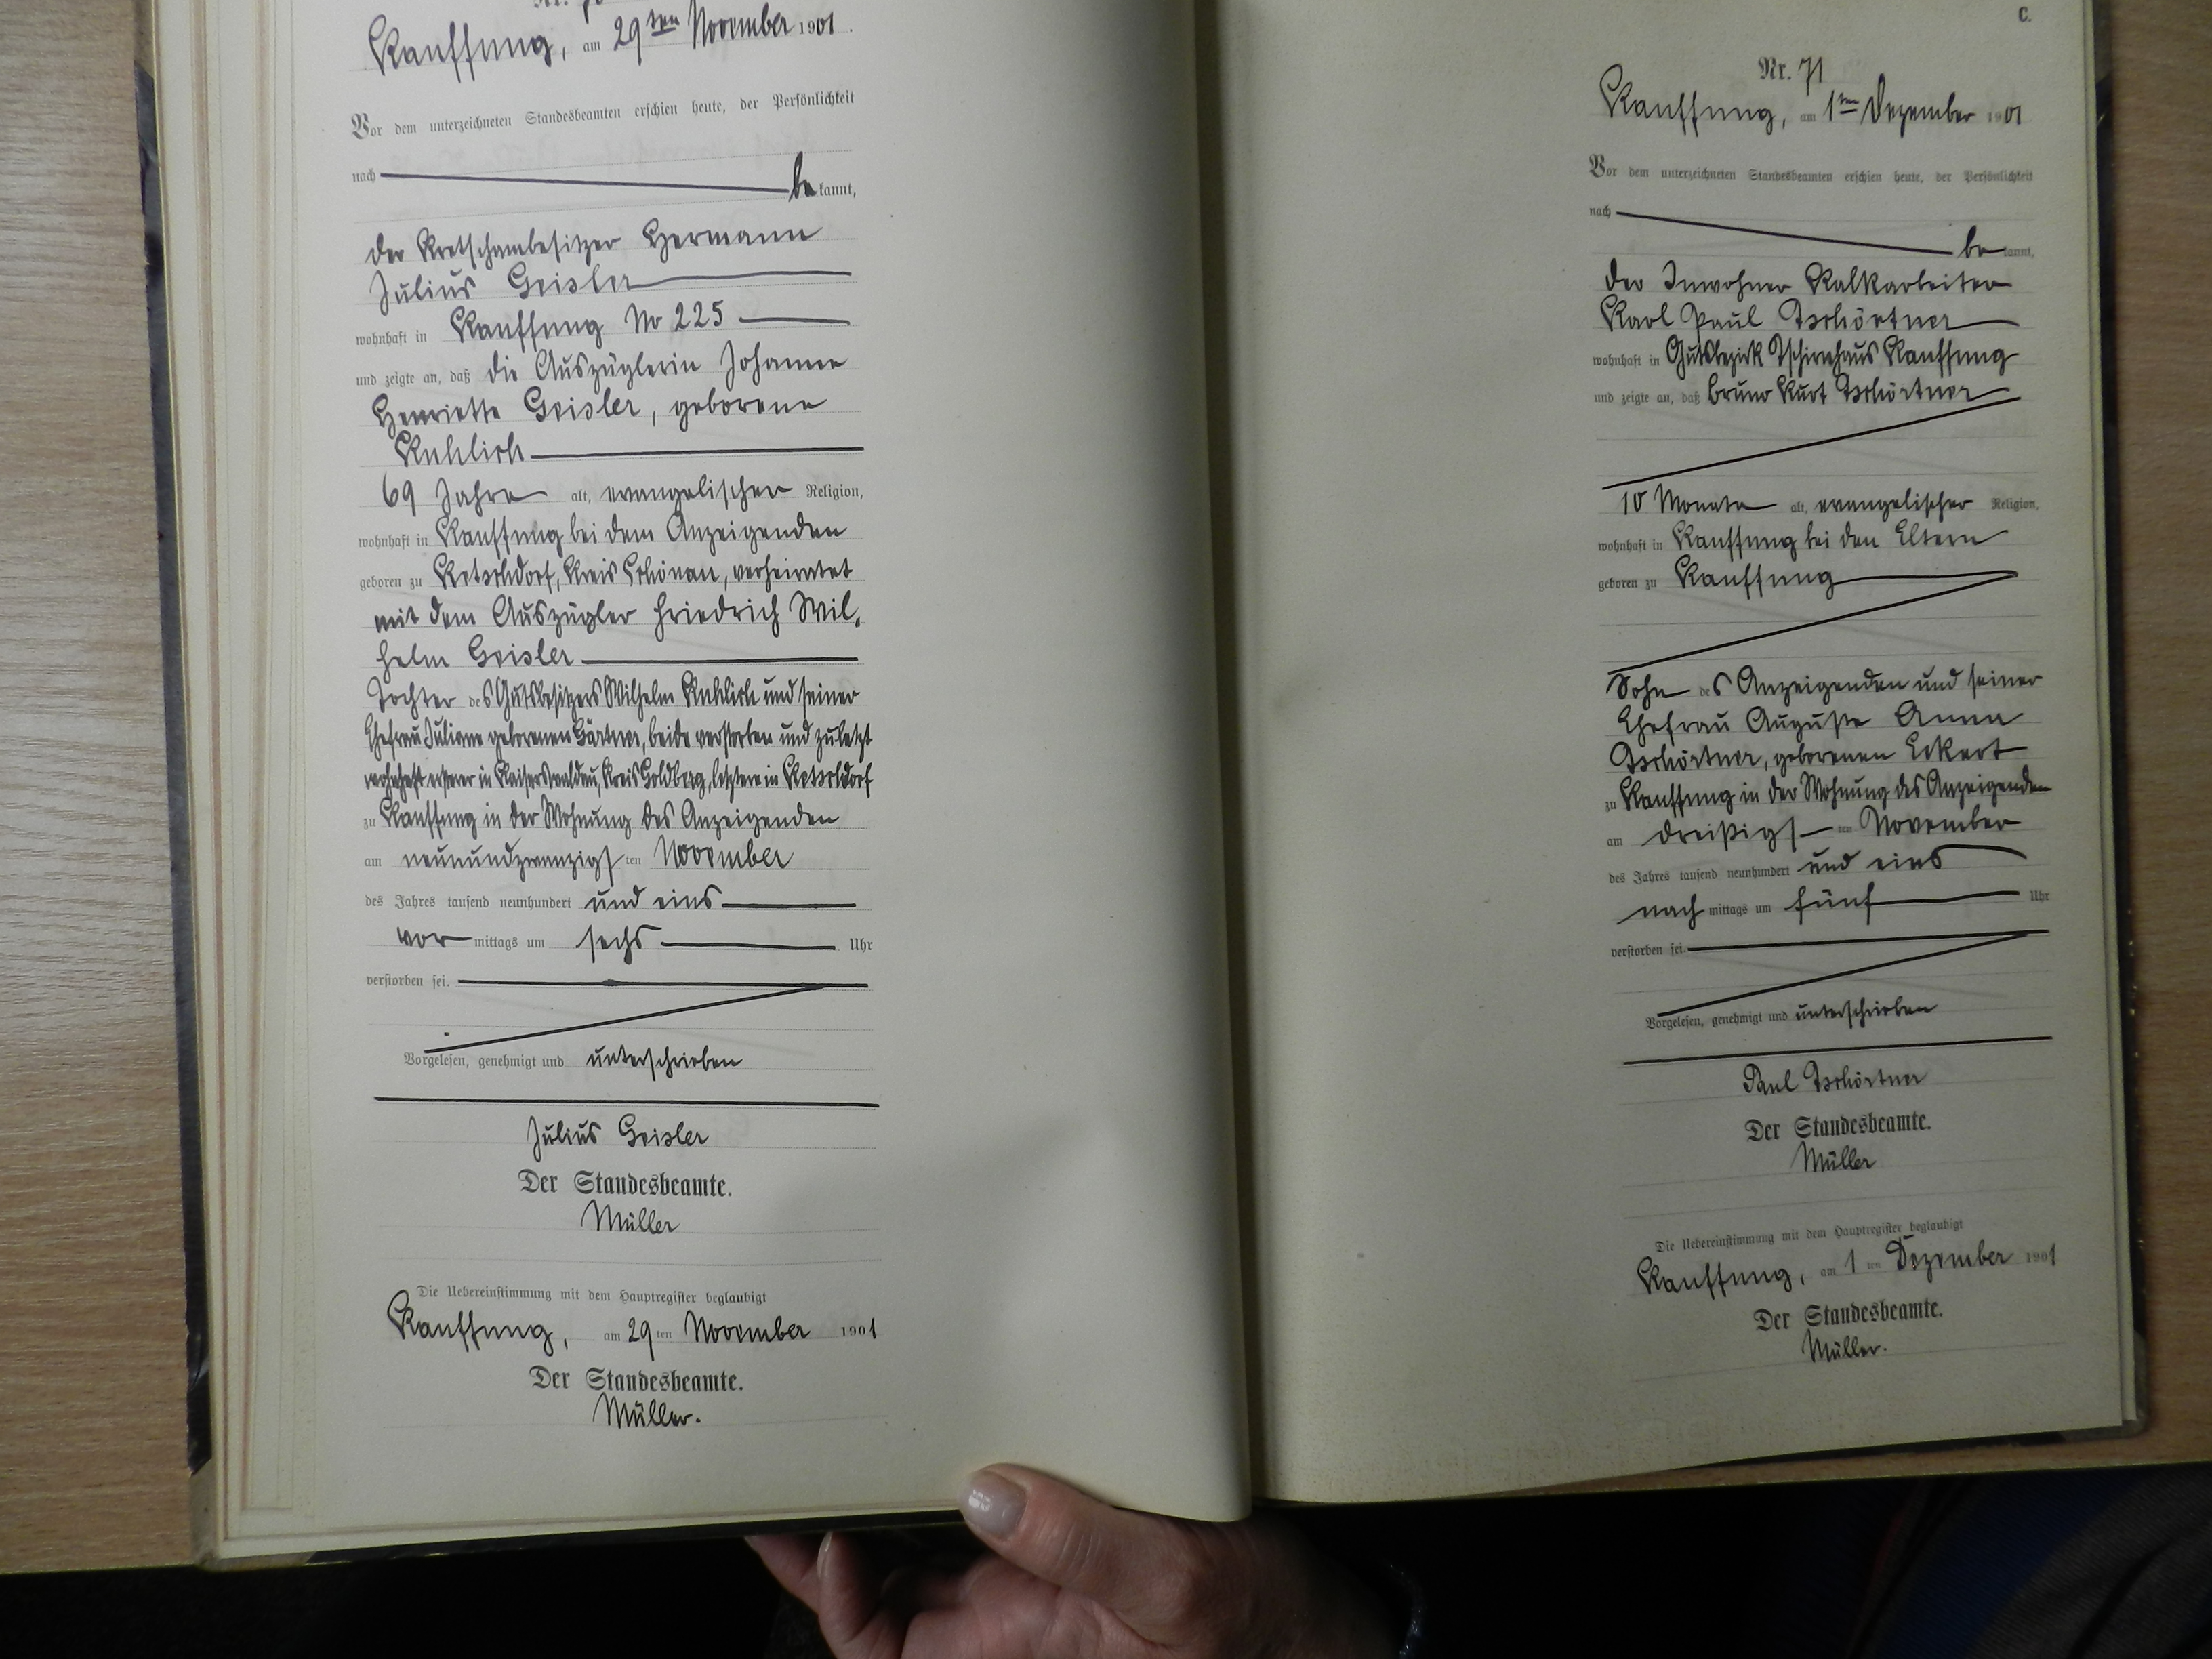 Nr. 70
Kauffung, am 29ten November 1901.
Vor dem unterzeichneten Standesbeamten erschien heute, der Persönlichkeit
nach bekannt,
der Kretschambesitzer Hermann
Julius Geisler
wohnhaft in Kauffung No 225
und zeigte an, daß die Auszüglerin Johanne
Henriette Geisler, geborene
69 Jahre alt, evangelischer Religion,
wohnhaft in Kauffung bei dem Anzeigenden
geboren zu Ketschdorf, Kreis Schönau, verheiratet
mit dem Auszügler Friedrich Wil-
helm Geisler
Tochter des Gutsbesitzers Wilhelm und seiner
Ehefrau Juliane geborenen Gärtner, beide verstorben und zuletzt
wohnhaft ersterer in Kaiserswaldau, Kreis Goldberg, letztere in Ketschdorf
zu Kauffung in der Wohnung des Anzeigenden
am neunundzwanzigsten November
des Jahres tausend neunhundert und eins
vormittags um sechs Uhr
verstorben sei.
Vorgelesen, genehmigt und unterschrieben
Julius Geisler
Der Standesbeamte.
Müller
Die Uebereinstimmung mit dem Hauptregister beglaubigt
Kauffung, am 29ten November 1901
Der Standesbeamte.
Müller.
C.
Nr. 71
Kauffung, am 1ten Dezember 1901
Vor dem unterzeichneten Standesbeamten erschien heute, der Persönlichkeit
nach bekannt,
der Inwohner Kalkarbeiter
Karl Paul Tschörtner
wohnhaft in Gutsbezirk Tschirnhaus Kauffung
und zeigte an, daß Bruno Kurt Tschörtner
10 Monate alt, evangelischer Religion,
wohnhaft in Kauffung bei den Eltern
geboren zu Kauffung
Sohn des Anzeigenden und seiner
Ehefrau Auguste Anna
Tschörtner, geborenen Eckert
zu Kauffung in der Wohnung des Anzeigenden
am dreißigsten November
des Jahres tausend neunhundert und eins
nachmittags um fünf Uhr
verstorben sei.
Vorgelesen, genehmigt und unterschrieben
Paul Tschörtner
Der Standesbeamte.
Müller
Die Uebereinstimmung mit dem Hauptregister beglaubigt
Kauffung, am 1ten Dezember 1901
Der Standesbeamte.
Müller.